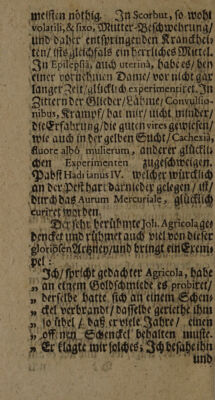 meisten nöthig. In Scorbut, so wohl
volatili, & fixo, Mutter-Beschwehrung/
und daher entspringenden Kranckhei-
ten/ ists gleichfals ein herrliches Mittel.
In Epilepsia, auch uterina, habe es/ bey
einer vornehmen Dame/ vor nicht gar
langer Zeit/ glücklich experimentiret. In
Zittern der Glieder/ Lähme/ Convulsio-
nibus, Krampf/ hat mir/ nicht minder/
die Erfahrung/ die guten vires gewiesen/
wie auch in der gelben Sucht/ Cachexia,
fluore albo mulierum, anderer glückli-
chen Experimenten zugeschweigen.
Pabst Hadrianus IV. welcher würcklich
an der Pest hart darnieder gelegen/ ist/
durch das Aurum Mercuriale, glücklich
curiret worden.
Der sehr berühmte Joh. Agricola ge-
dencket und rühmet auch viel von dieser
gloriosen Artzney/ und bringt ein Exem-
pel:
„ Ich/ spricht gedachter Agricola, habe
„ an einem Goldschmiede es probiret/
„ derselbe hatte sich an einem Schen-
„ ckel verbrandt/ dasselbe geriethe ihm
„ so übel/ daß er viele Jahre/ einen
„ offnen Schenckel behalten muste.
„ Er klagte mir solches; Ich besahe ihn
und